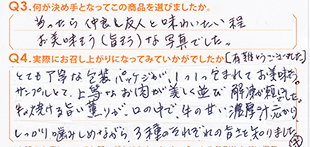 Q3.何が決め手となってこの商品を選びましたか。
もったら仲良し友人と味わいたい程
お美味そう(旨そう)な写真でした。
Q4.実際にお召し上がりになってみていかがでしたか
[有難うございました]
とても丁寧な包装パッケージが、1つ1つ包まれてお美味
サンプルとて、上等なお肉が美しく並び 解凍が
焼ける旨い薫りが、口の中で、牛の甘い濃厚汁広がり
しっかり噛みしめながら、3種のそれぞれの旨さを知りました。